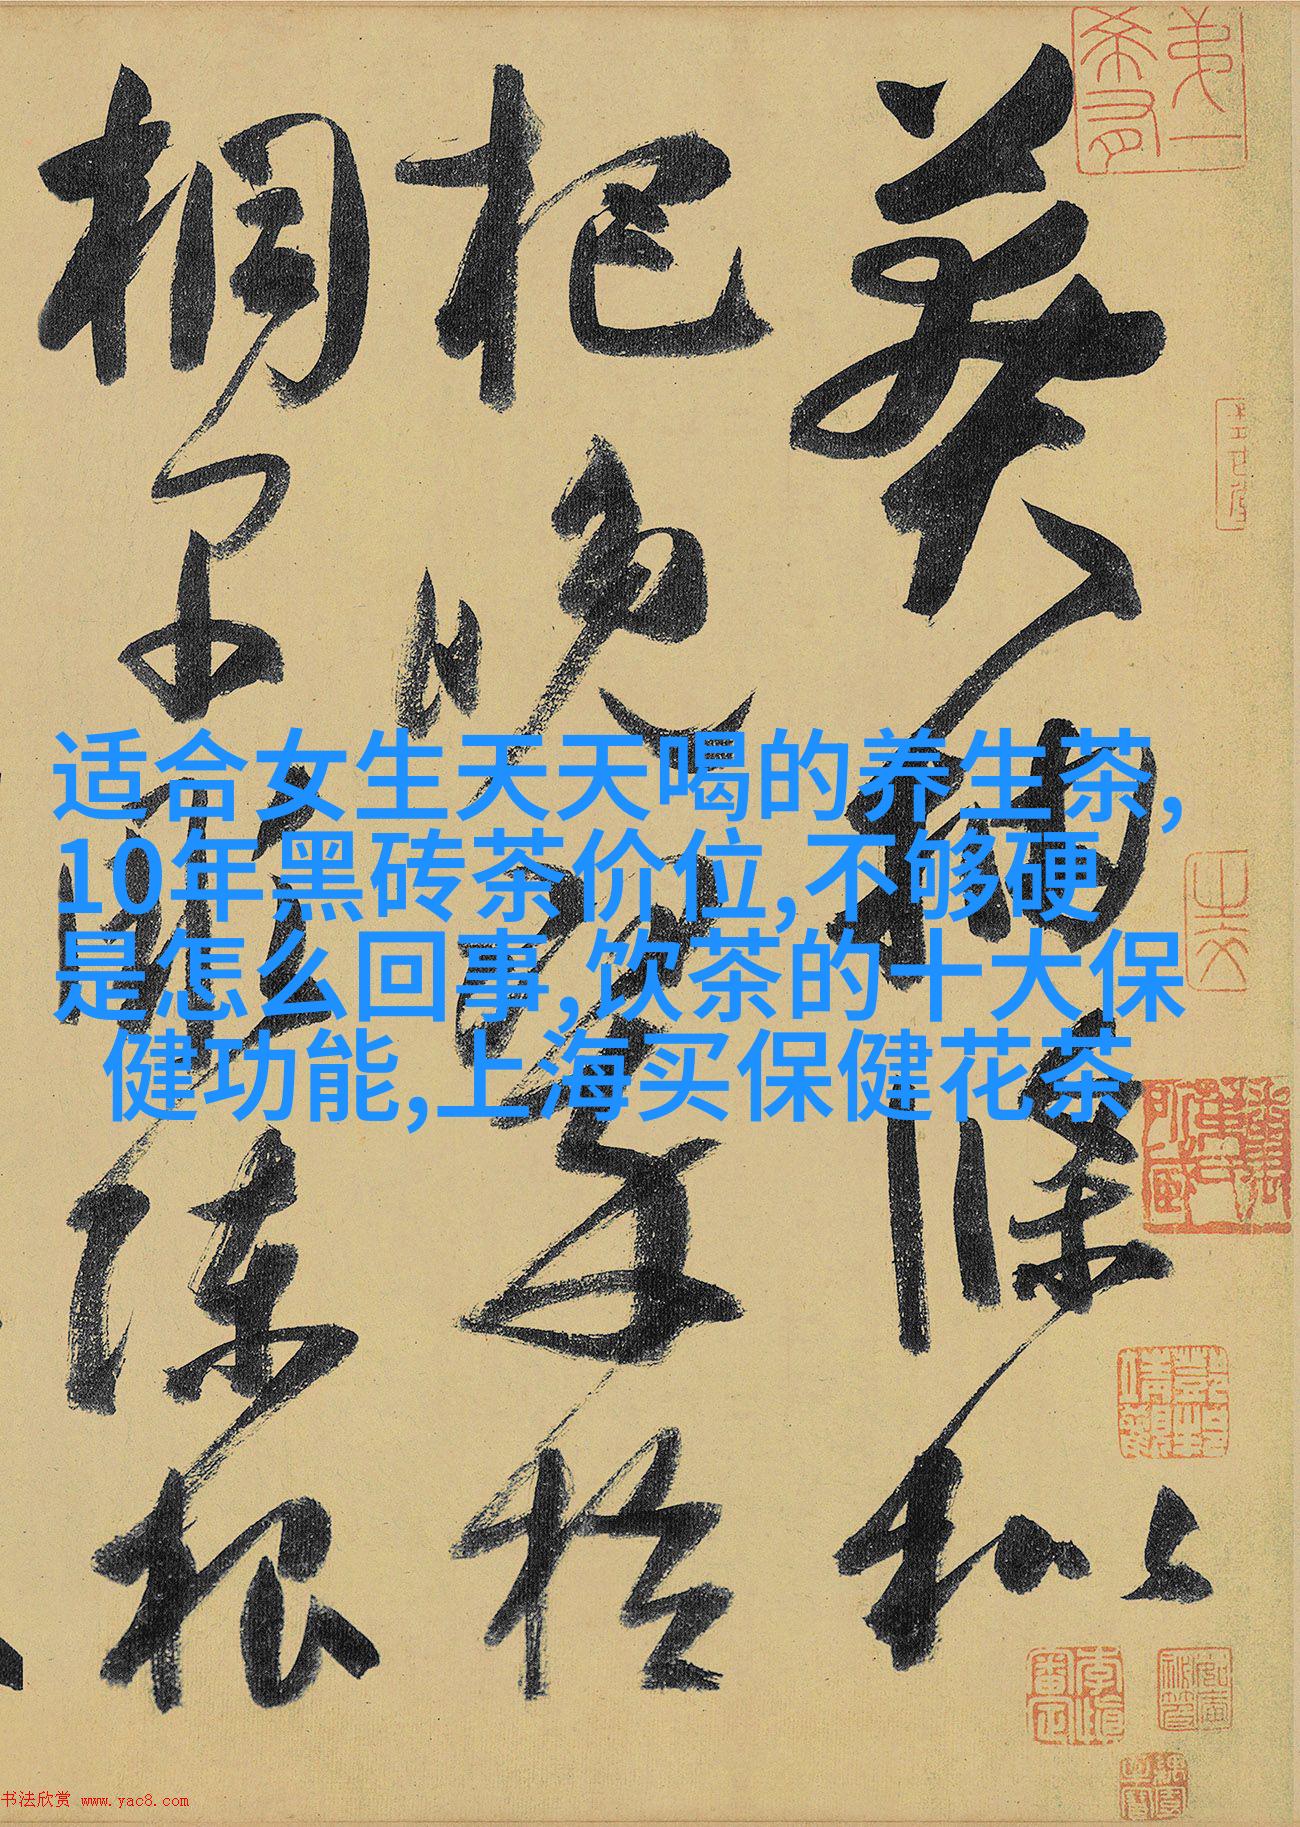 莽抽條枇
杷晚翠梧
桐早凋陳根
适合女生天天喝的养生茶,
10年黑砖茶价位,不够硬
是怎么回事,饮茶的十大保
健功能,上海买保健花茶
书法欣赏 www.yac8.com